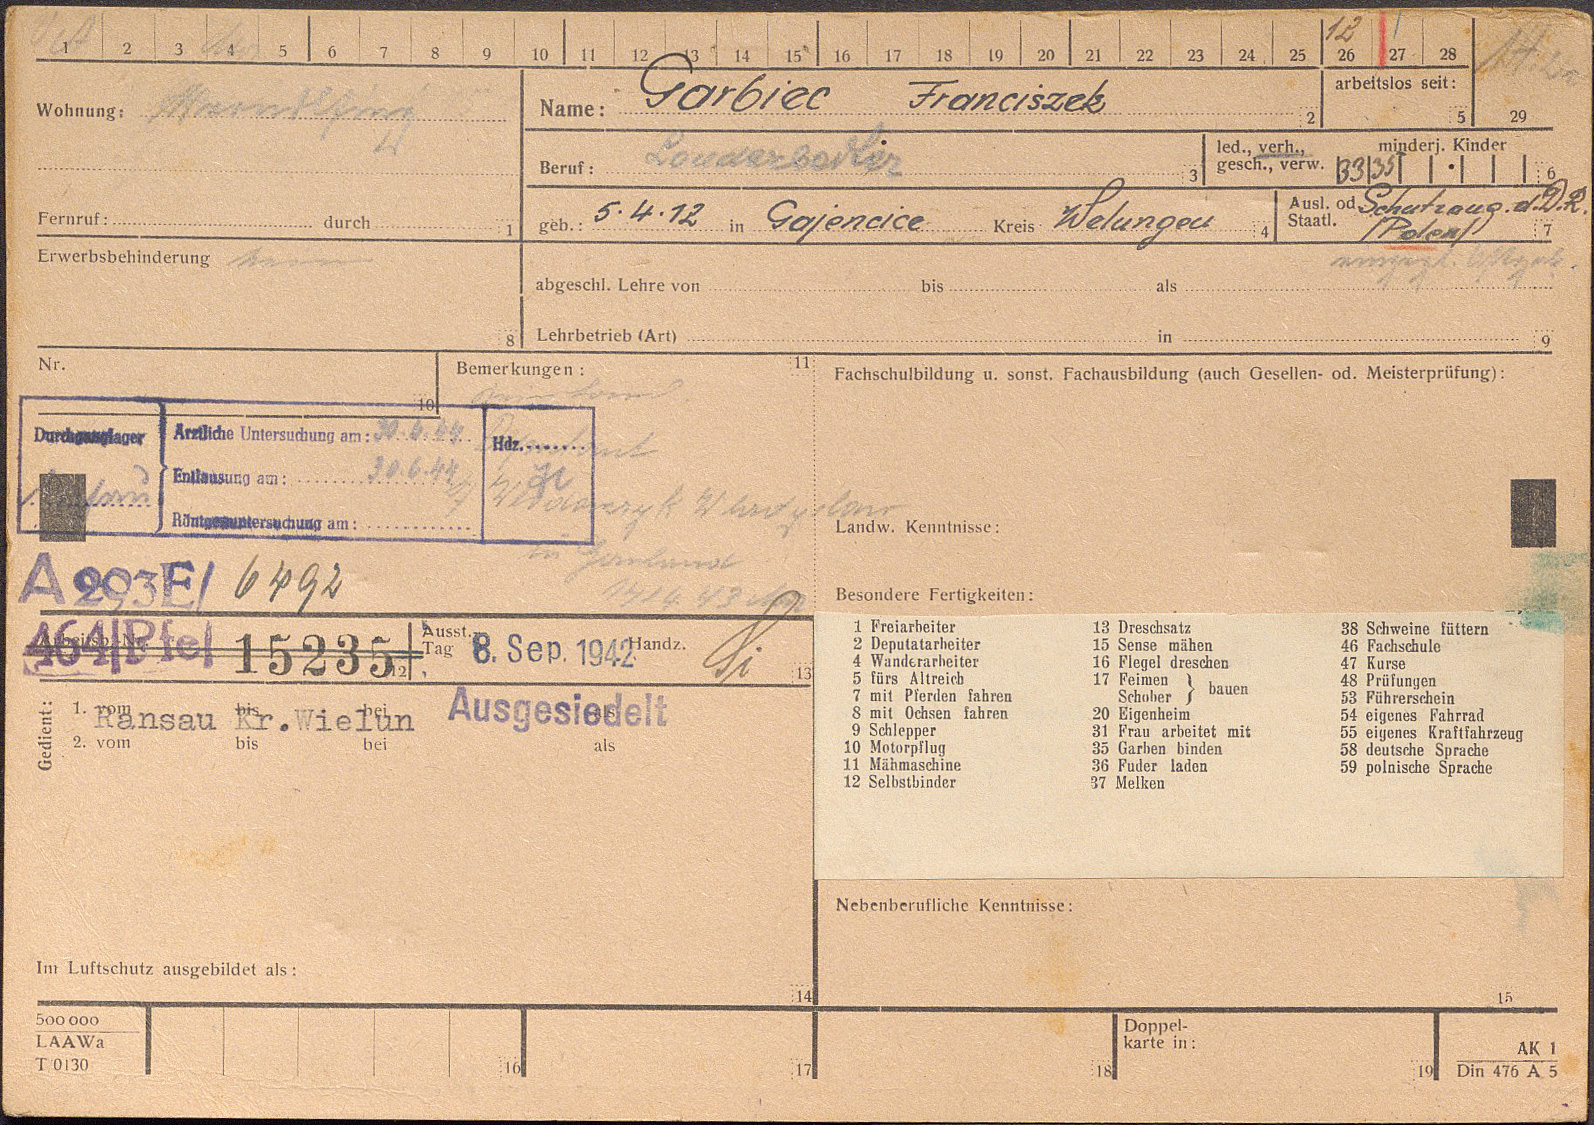 1 2 3 4 5 6 7 8 9 10 11 12 13 14 15 16 17 18 19 20 21 22 23 24 25 26 27 28
12
Wohnung:
Name: Garbiec Franciszek 2
arbeitslos seit: 5
29
Beruf: 3
led., verh., gesch., verw.
minderj. Kinder
33 35 6
Fernruf: durch 1
geb.: 5.4.12 in Gajencice Kreis Welungen 4
Ausl. od. Staatl. Schutzang. d. D.R.
/Polen/ 7
Erwerbsbehinderung
8
abgeschl. Lehre von bis als
Lehrbetrieb (Art) in 9
Nr.
10
Bemerkungen: 11
Fachschulbildung u. sonst. Fachausbildung (auch Gesellen- od. Meisterprüfung):
Durchganglager
Ärztliche Untersuchung am: 30.6.44
Entlausung am: 30.6.44
Röntgenuntersuchung am:
Hdz.
Landw. Kenntnisse:
A 293E/ 6492
Besondere Fertigkeiten:
Arbeitsb.-Nr.
464/Pfel 15235 12
Ausst.-
Tag 8. Sep. 1942 Handz.
13
Gedient:
1. vom bis bei als
Ransau Kr.Wielun Ausgesiedelt
2. vom bis bei als
1 Freiarbeiter
2 Deputatarbeiter
4 Wanderarbeiter
5 fürs Altreich
7 mit Pferden fahren
8 mit Ochsen fahren
9 Schlepper
10 Motorpflug
11 Mähmaschine
12 Selbstbinder
13 Dreschsatz
15 Sense mähen
16 Flegel dreschen
17 Feimen
Schober } bauen
20 Eigenheim
31 Frau arbeitet mit
35 Garben binden
36 Fuder laden
37 Melken
38 Schweine füttern
46 Fachschule
47 Kurse
48 Prüfungen
53 Führerschein
54 eigenes Fahrrad
55 eigenes Kraftfahrzeug
58 deutsche Sprache
59 polnische Sprache
Nebenberufliche Kenntnisse:
Im Luftschutz ausgebildet als:
14
15
500 000
LAAWa
T 0130
16
17
18
Doppel-
karte in:
19
AK 1
Din 476 A 5